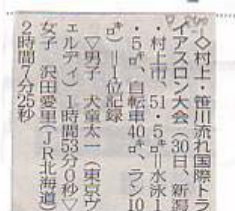 ◇村上・笹川流れ国際トラ
イアスロン大会（30日、新潟
・村上市、51・5㌔＝水泳1
・5㌔、自転車40㌔、ラン10
㌔）＝1位記録
▽男子　大童太一（東京ヴ
ェルディ）1時間53分0秒▽
女子　沢田愛里（JR北海道）
2時間7分25秒